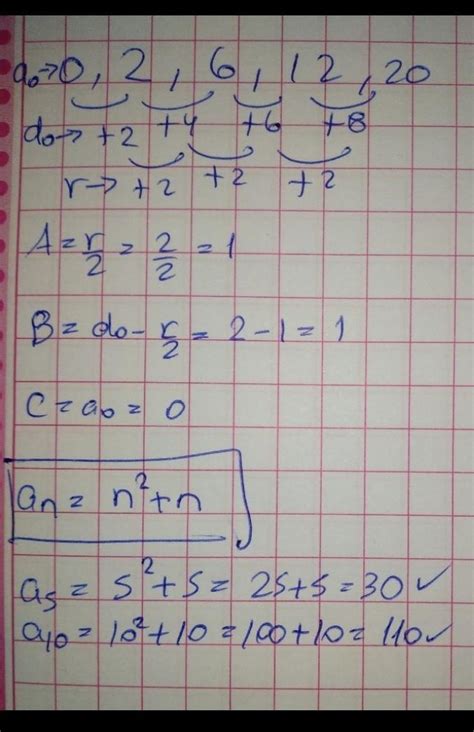 a₀→0, 2, 6, 12, 20
d₀→ +2 +4 +6 +8
r→ +2 +2 +2
A = r/2 = 2/2 = 1
B = d₀ - r/2 = 2 - 1 = 1
C = a₀ = 0
aₙ = n² + n
a₅ = 5² + 5 = 25 + 5 = 30 ✓
a₁₀ = 10² + 10 = 100 + 10 = 110 ✓